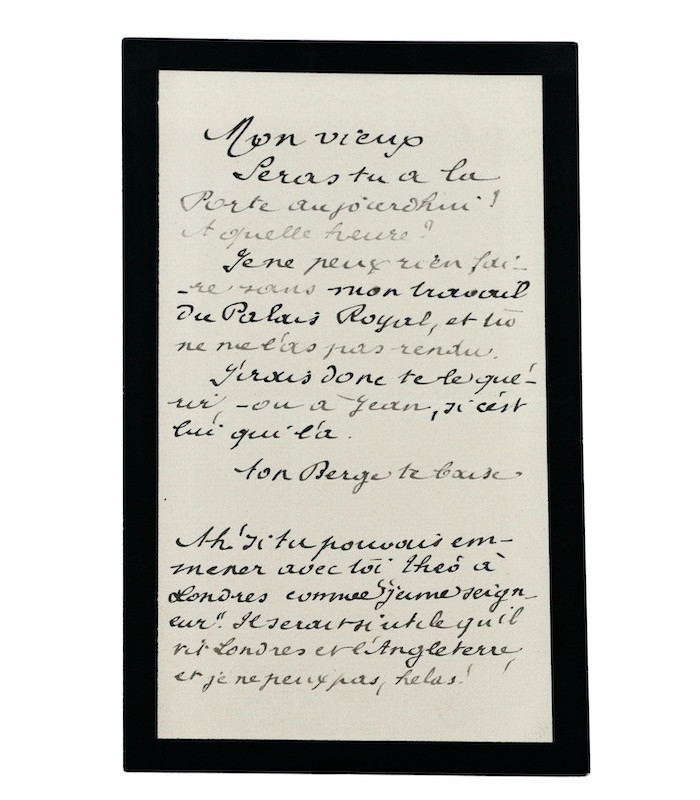 Mon vieux
Seras tu a la
Porte aujourdhui!
A quelle heure?
Je ne peux rien fai-
-re sans mon travail
Du Palais Royal, et tu
ne me l'as pas rendu.
J'irais donc te le qué-
rir, -ou à Jean, si c'est
lui qui l'a.
ton Berge te baise
Ah! si tu pouvais em-
mener avec toi Théo à
Londres comme "jeune seign-
eur". Il serait si utile qu'il
vit Londres et l'Angleterre,
et je ne peux pas, helas!